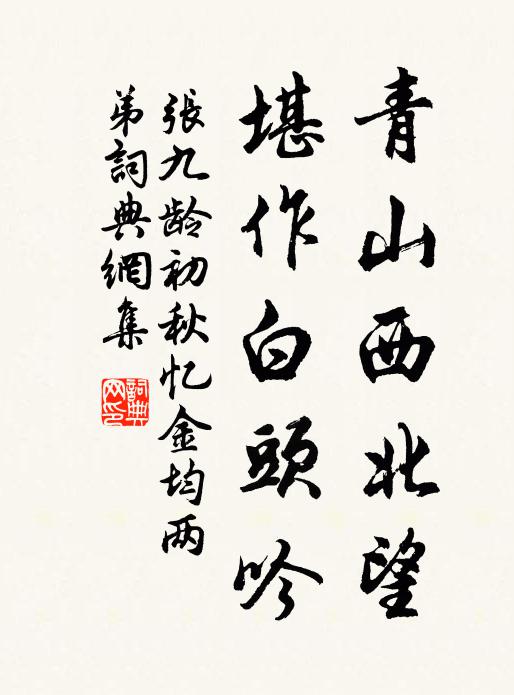 青山西北望
堪作白頭吟
張九龄初秋忆金均两
弟詞典網集
詞典网印